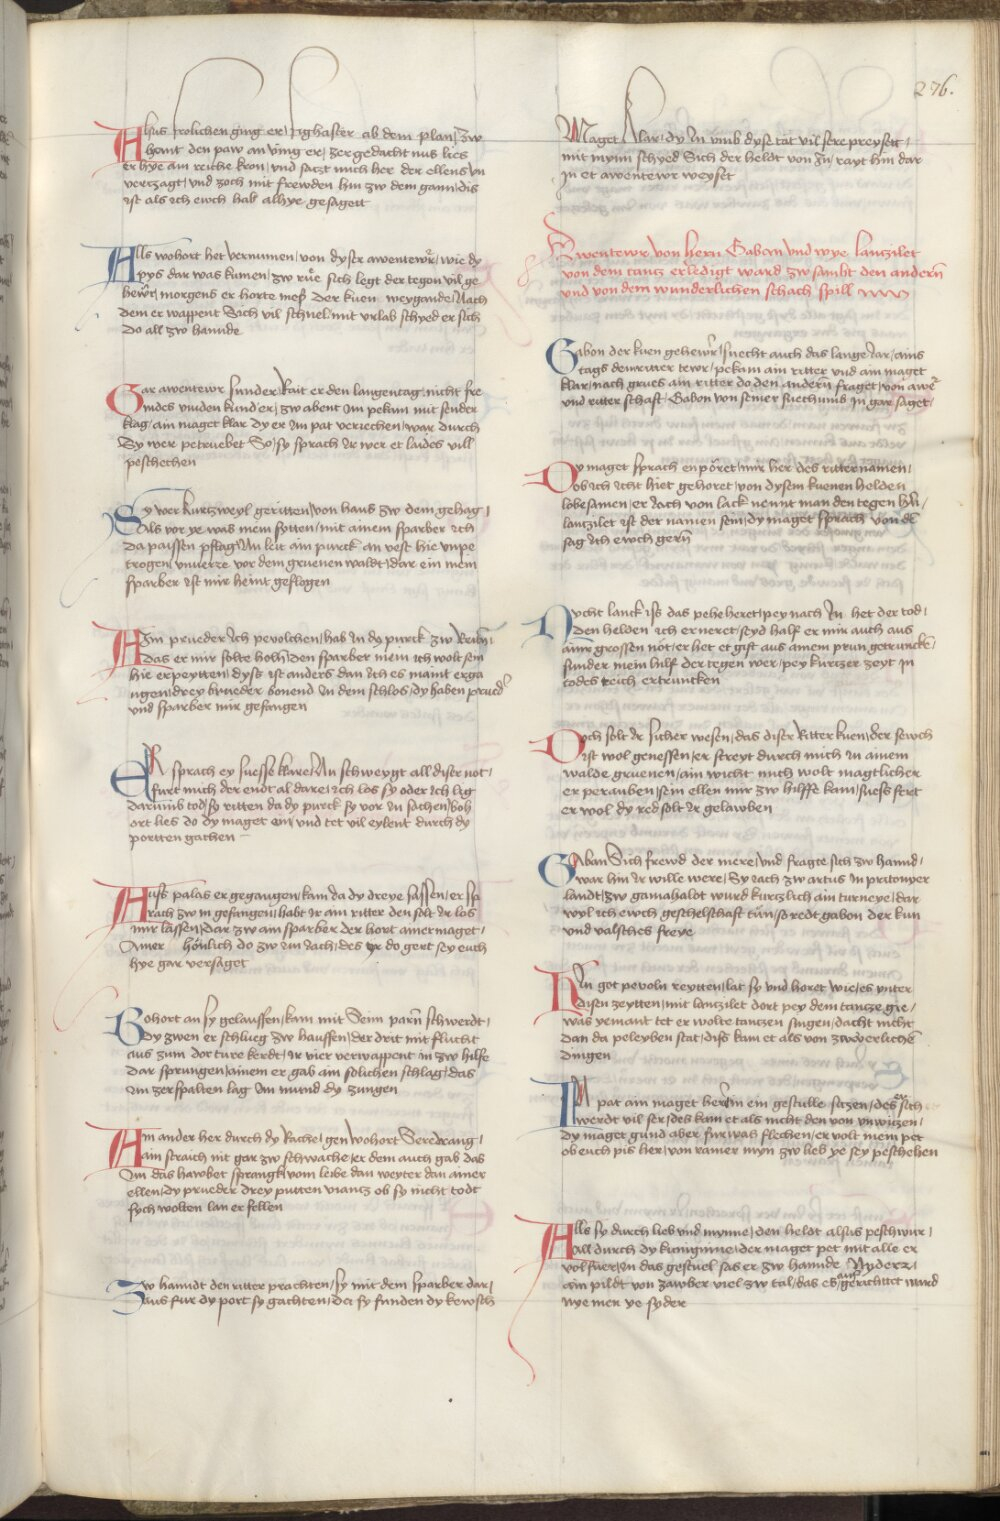 276.
Alsus frolichen ging er / righaffter ab dem plan / zw
hont den paw an ving er / zer gedacht nus lies
er hye ain reiche kron / vnd saczt mich her der ellens vn
verczagt / vnd zoch mit frewden hin zw dem gann / dis
ist als ich ewch hab alhye gesagett
Alls wohort het vernumen / von dyser awentewr / wie dy
pys dar was kumen / zw rue sich legt der tegen vil ge
hewr / morgens er horte mess der kuen weygande / Nach
dem er wappent Sich vil schnel / mit vrlab schyed er sich
do all zw hannde
Gar awentewr sunder / Rait er den langen tag / nicht fre
mdes vinden kund er / zw abent Im pekum mit sender
klag / ain maget klar dy er Im pat verzechen / war durch
Sy wer petruebet So / sy sprach Ir wer et laides vill
peschechen
Sy wer kurtzweyl geritten / von haus zw dem gehag /
Als vor ye was mein sytten / mit ainem sparber ich
da paissen pflag / Nu leit ain purck an vest hie vnpe
trogen / vnuerre vor dem gruenen waldt / dar ein mein
sparber ist mir heint geflogen
Aim prueder Ich pevolchen / hab In dy purck zw Reiten /
das er mir solte holn / den sparber mein ich wolt sein
hie erpeytten / dyss ist anders dan Ich es maint erga
ngen / drey brueder bonend In dem schlos / dy haben prued
vnd sparber mir gefangen
ER sprach ey suesse klare / Nu schweygt all diser not /
furt mich der endt al dare / ich los sy oder Ich lig
darumb tod / sy ritten da dy purck sy vor In sachen / hoh
ort lies do dy maget ein / vnd tet vil eylent durch dy
portten gachen
Auss palas er gegangen / kam da dy dreye sassen / er sp
rach zw in gefangen / habt Ir ain ritter den solt Ir los
mir lassen / dar zw ain sparber der hort ainer maget /
Ainer honlich do zw im Iach / des Ir do gert sey euch
hye gar versaget
Bohort an sy gelauffen / kam mit Seim parn schwerdt /
dy zwen er schlueg zw hauffen / der drit mit flucht
aus zum dor ture kerdt / Ir vier verwappent in zw hilfe
dar sprungen / ainem er gab ain solichen schlag / das
Im zerspalten lag Im mund dy zungen
Aim ander her durch dy Rache / gen wohort Sere drang /
ain straich nit gar zw schwache / er dem auch gab das
Im das hawbet sprangk / vom leibe dan weyter dan ainer
ellen / dy prueder drey putten vianntz ob sy nicht todt
sych wolten lan er fellen
Zw hanndt den ritter prachten / sy mit dem sparber dar /
aus fur dy port sy gachten / da sy funden dy kewsch
Maget klar / dy In vmb dyse tat vil sere preysett /
mit mynn schyed Sich der heldt von Jn / rayt hin dar
in et awentewr weyset
Awentewr von hern Gaban vnd wye lanzilet
von dem tancz erledigt ward zw sambt den andern
vnd von dem wunderlichen schach spill
Gabon der kuen gehewr / suecht auch das lange Iar / ains
tags dem ritter tewr / pekam ain ritter vnd ain maget
klar / nach grues ain ritter do den andern fraget / von awe
vnd ritterschaft / Gabon von seiner suechund in gar saget /
Dy maget sprach enporet / mir her des ritter namen /
ob ich icht hiet gehoret / von dysem kuenen helden
lobesamen / er Iach von lack nennt man den tegen hn /
lantzilet ist der namen sein / dy maget sprach von de
sag ich ewch gern
Nycht lanck ist das pehe heret / pey nach In het der tod /
den helden ich erneret / seyd half er mir auch aus
ainer grossen not / er het et gift aus ainem prun getruncken
sunder mein hilf der tegen wer / pey kurtzer zeyt in
todes reich ertruncken
Doch solt Ir sicher wesen / das diser Ritter kuen / der sewch
ist wol genessen / er streyt durch mich in ainem
walde gruenen / ain wicht mich wolt magtlicher
er perauben / sein ellen mir zw hilffe kam / suess strit
er wol dy red solt Ir gelawben
Gaban Sich frewd der mere / vnd fragte sich zw hannd /
war hin Ir wille were / Sy iach zw artus in pritonyer
landt / zw gamahaldt wurd kurtzlich ain turneye / dar
wyl ich ewch geschelschaft tun / so redt gabon der kun
vnd valsches freye
Nu got pevoln reytten / lat sy vnd horet wie / es vnter
disen zeytten / mit lanzilet dort pey dem tancze gie /
was yemant tet er wolte tanczen singen / dacht nicht
dan da peleyben stat / diss kam et als von zwverlichen
dingen
IN pat ain maget herein ein gestulle sitzen / des er sich
werdt vil ser / des kam et als nicht den von vnwitzen /
dy maget gund aber furwas flechen / er volt meim pet
ob euch pis her / von rainer myn zw lieb ye sey peschehen
Alls sy durch lieb vnd mynne / den heldt alsus peschwur /
all durch dy kuniginne / der maget pet mit alle er
vol fuer / in das gestuel sas er zw hannde Nyder /
ain pildt von zawber viel zw tal / das es auf gerichttet ward
nye mer ye syder